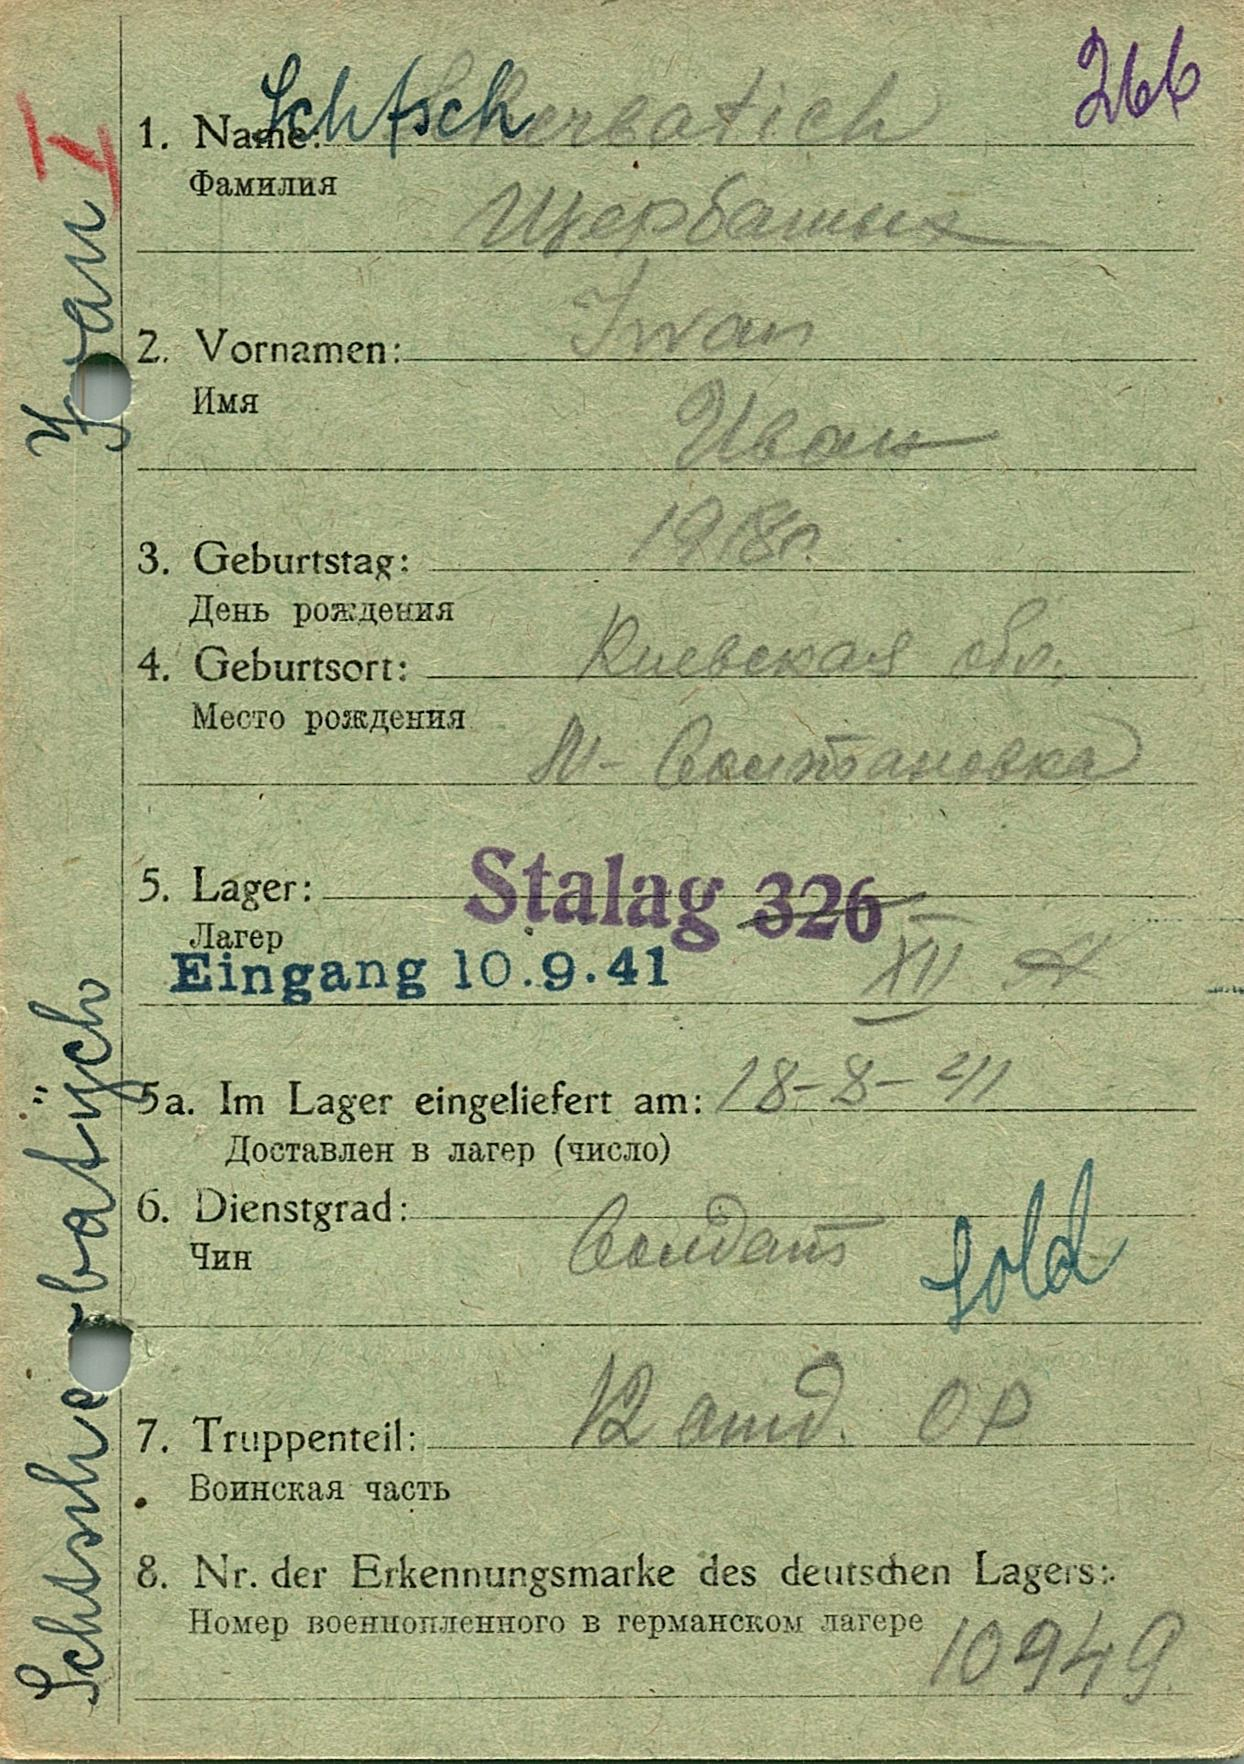 266
1. Name: Schtscherbatich
Фамилия
Щербатых
2. Vornamen: Iwan
Имя
Иван
3. Geburtstag: 1918г.
День рождения
4. Geburtsort: Киевская обл.
Место рождения
М-
5. Lager: Stalag 326
Лагер
Eingang 10.9.41 XII A
5a. Im Lager eingeliefert am: 18-8-41
Доставлен в лагер (число)
6. Dienstgrad:
Чин
Солдат Sold
7. Truppenteil: 12
Воинская часть
8. Nr. der Erkennungsmarke des deutschen Lagers:
Номер военнопленного в германском лагере
10949
Schtscherbatych Iwan I